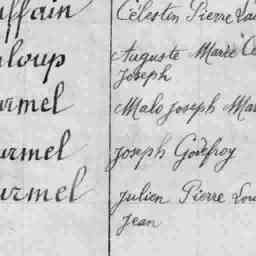 uffain Célestin Pierre Lou
uloup Auguste Marie Ce
Joseph
urmel Malo Joseph Mar
urmel Joseph Godefroy
urmel Julien Pierre Lou
Jean